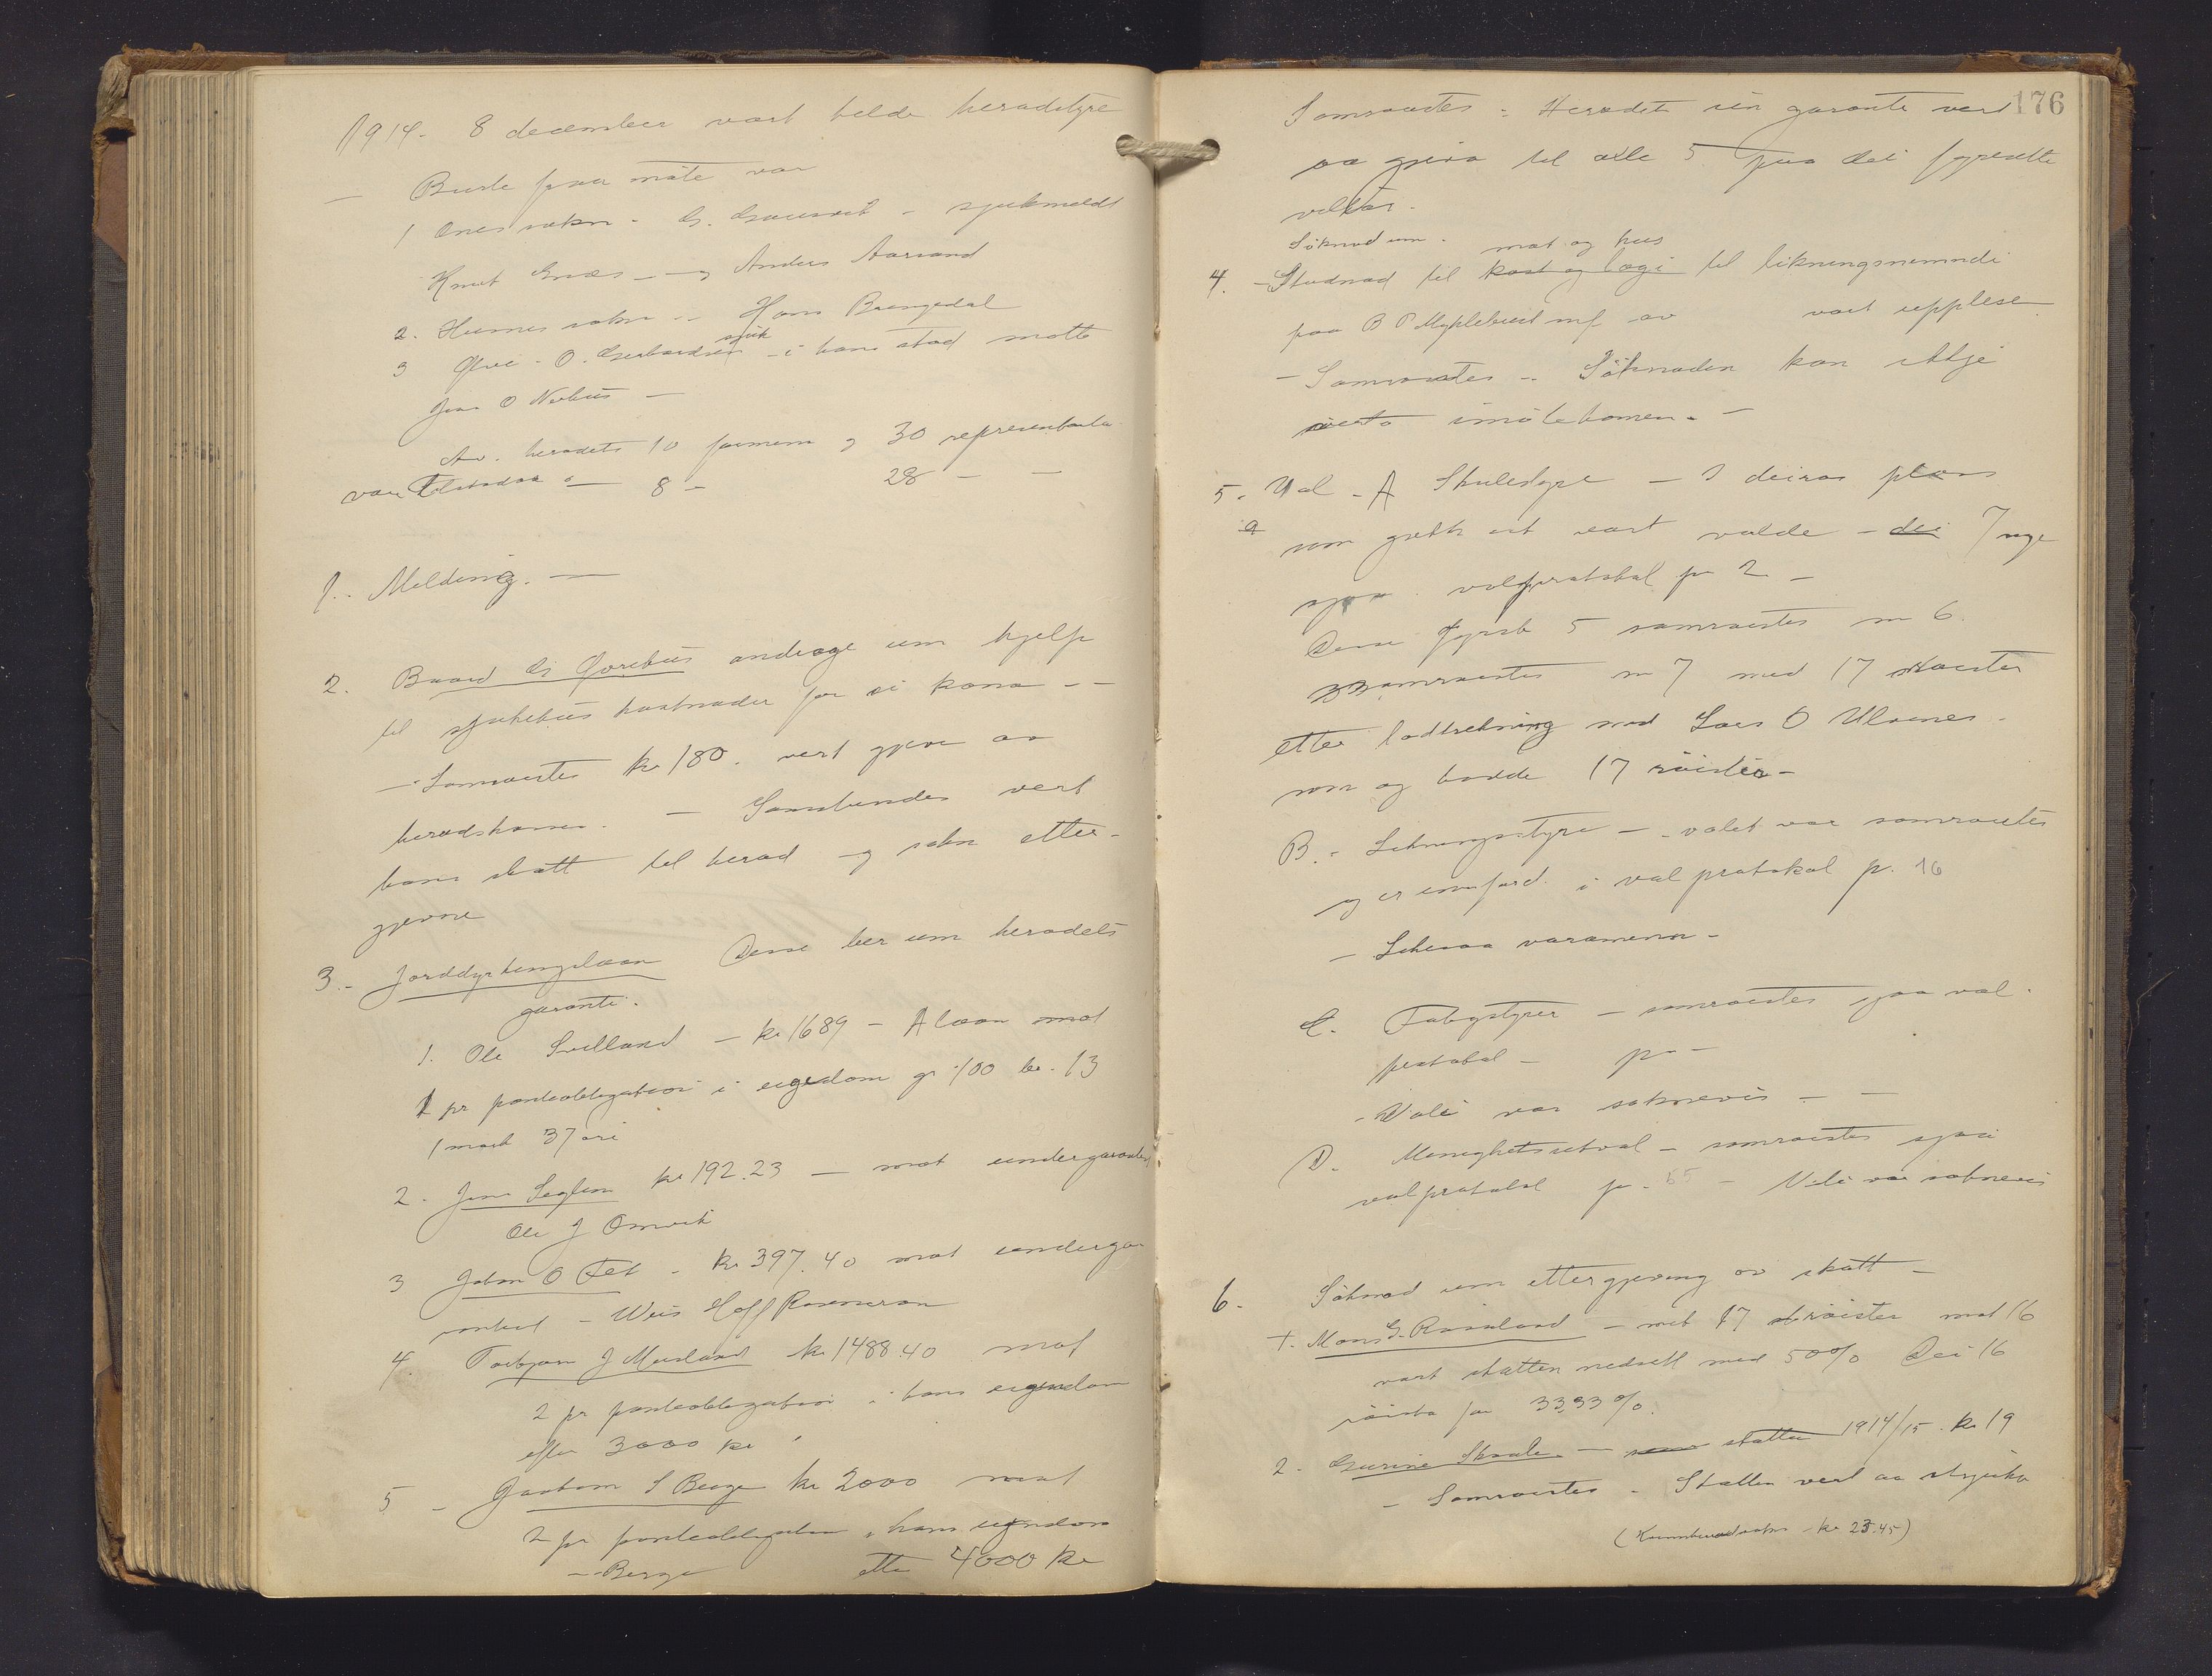 1914. 8 december vart helde heradstyre
— Burte fraa møte var
1 Ænes sokn - G. - sjukmeldt
Knut Enæs - og Anders Aarsand
2. Husnes sokn - Hans Brengedal
3 Ølve - O. Gerhardsen sjuk - i hans stad møtte
Jens O Nerhus —
Av heradets 10 formenn og 30 representanta
var tilstades — 8 - 28 — —
1. Melding. —
2. Baard G Ørehus andrage um hjelp
til sjukehus kostnader for si kona - -
— Samrøistes kr 180. vert gjeve av
heradskassa. — Samstundes vert
hans skatt til herad og sokn etter-
gjevne
3. - Jorddyrkingslaan Desse ber um heradets
garanti.
1. Ole Sulland — kr 1689 - A laan mot
1 pr panteobligation i eigedom gr 100 br. 13
1 mark 37 øri
2. Jens Seglem kr 192.23 — mot undergaranti
Ole J Omvik
3 Johan O Fet - kr 397.40 mot underga-
ranti - Hoff Rosencron
4. Torbjørn J Musland kr 1488.40 mot
2 pr panteobligation i hans eigendom
efter 3000 kr
5 - Joakim S Berge kr 2000 mot
2 pr panteobligation i hans eigendom
— Berge etter 4000 kr
176
Samraadtes : Heradet sin garanti vert
aa gjeva til alle 5 paa dei fyresette
vilkår.
Søknad um. mat og hus
4. - Studnad til kost og logi til likningsnemndi
fraa B P Myklebust mf av vart upplese
- Samrøistes - Søknaden kan ikkje
røista imøtekomen. —
5. Val - A Skulestyre — I deiras plass
a som gjekk ut vart valde - dei 7 nye
sjaa valprotokol p 2 —
Desse fyrste 5 samrøistes nr 6
samrøistes nr 7 med 17 røister
etter lodtrekning med Lars O Ulvenes
som og hadde 17 røister -
B. - Likningsstyre — valet var samrøistes
og er innførd i valprotokol p. 16
— Likesaa varamenn -
C. Fatigstyrer — samrøistes sjaa val-
protokol — p —
- Vali var soknevis — —
D. Menighetsutval - samrøistes sjaa
valprotokol p. 55 - Vali var soknevis
6. Søknad um ettergjeving av skatt —
+. Mons G. Rosseland — med 17 røister mot 16
vart skatten nedsett med 50% Dei 16
røista for 33,33%.
2. Gurine Skaale — skatten 1914/15. kr 19
- Samrøistes - Skatten vert aa stryka
(Kvinnherad sokn kr 23.45)